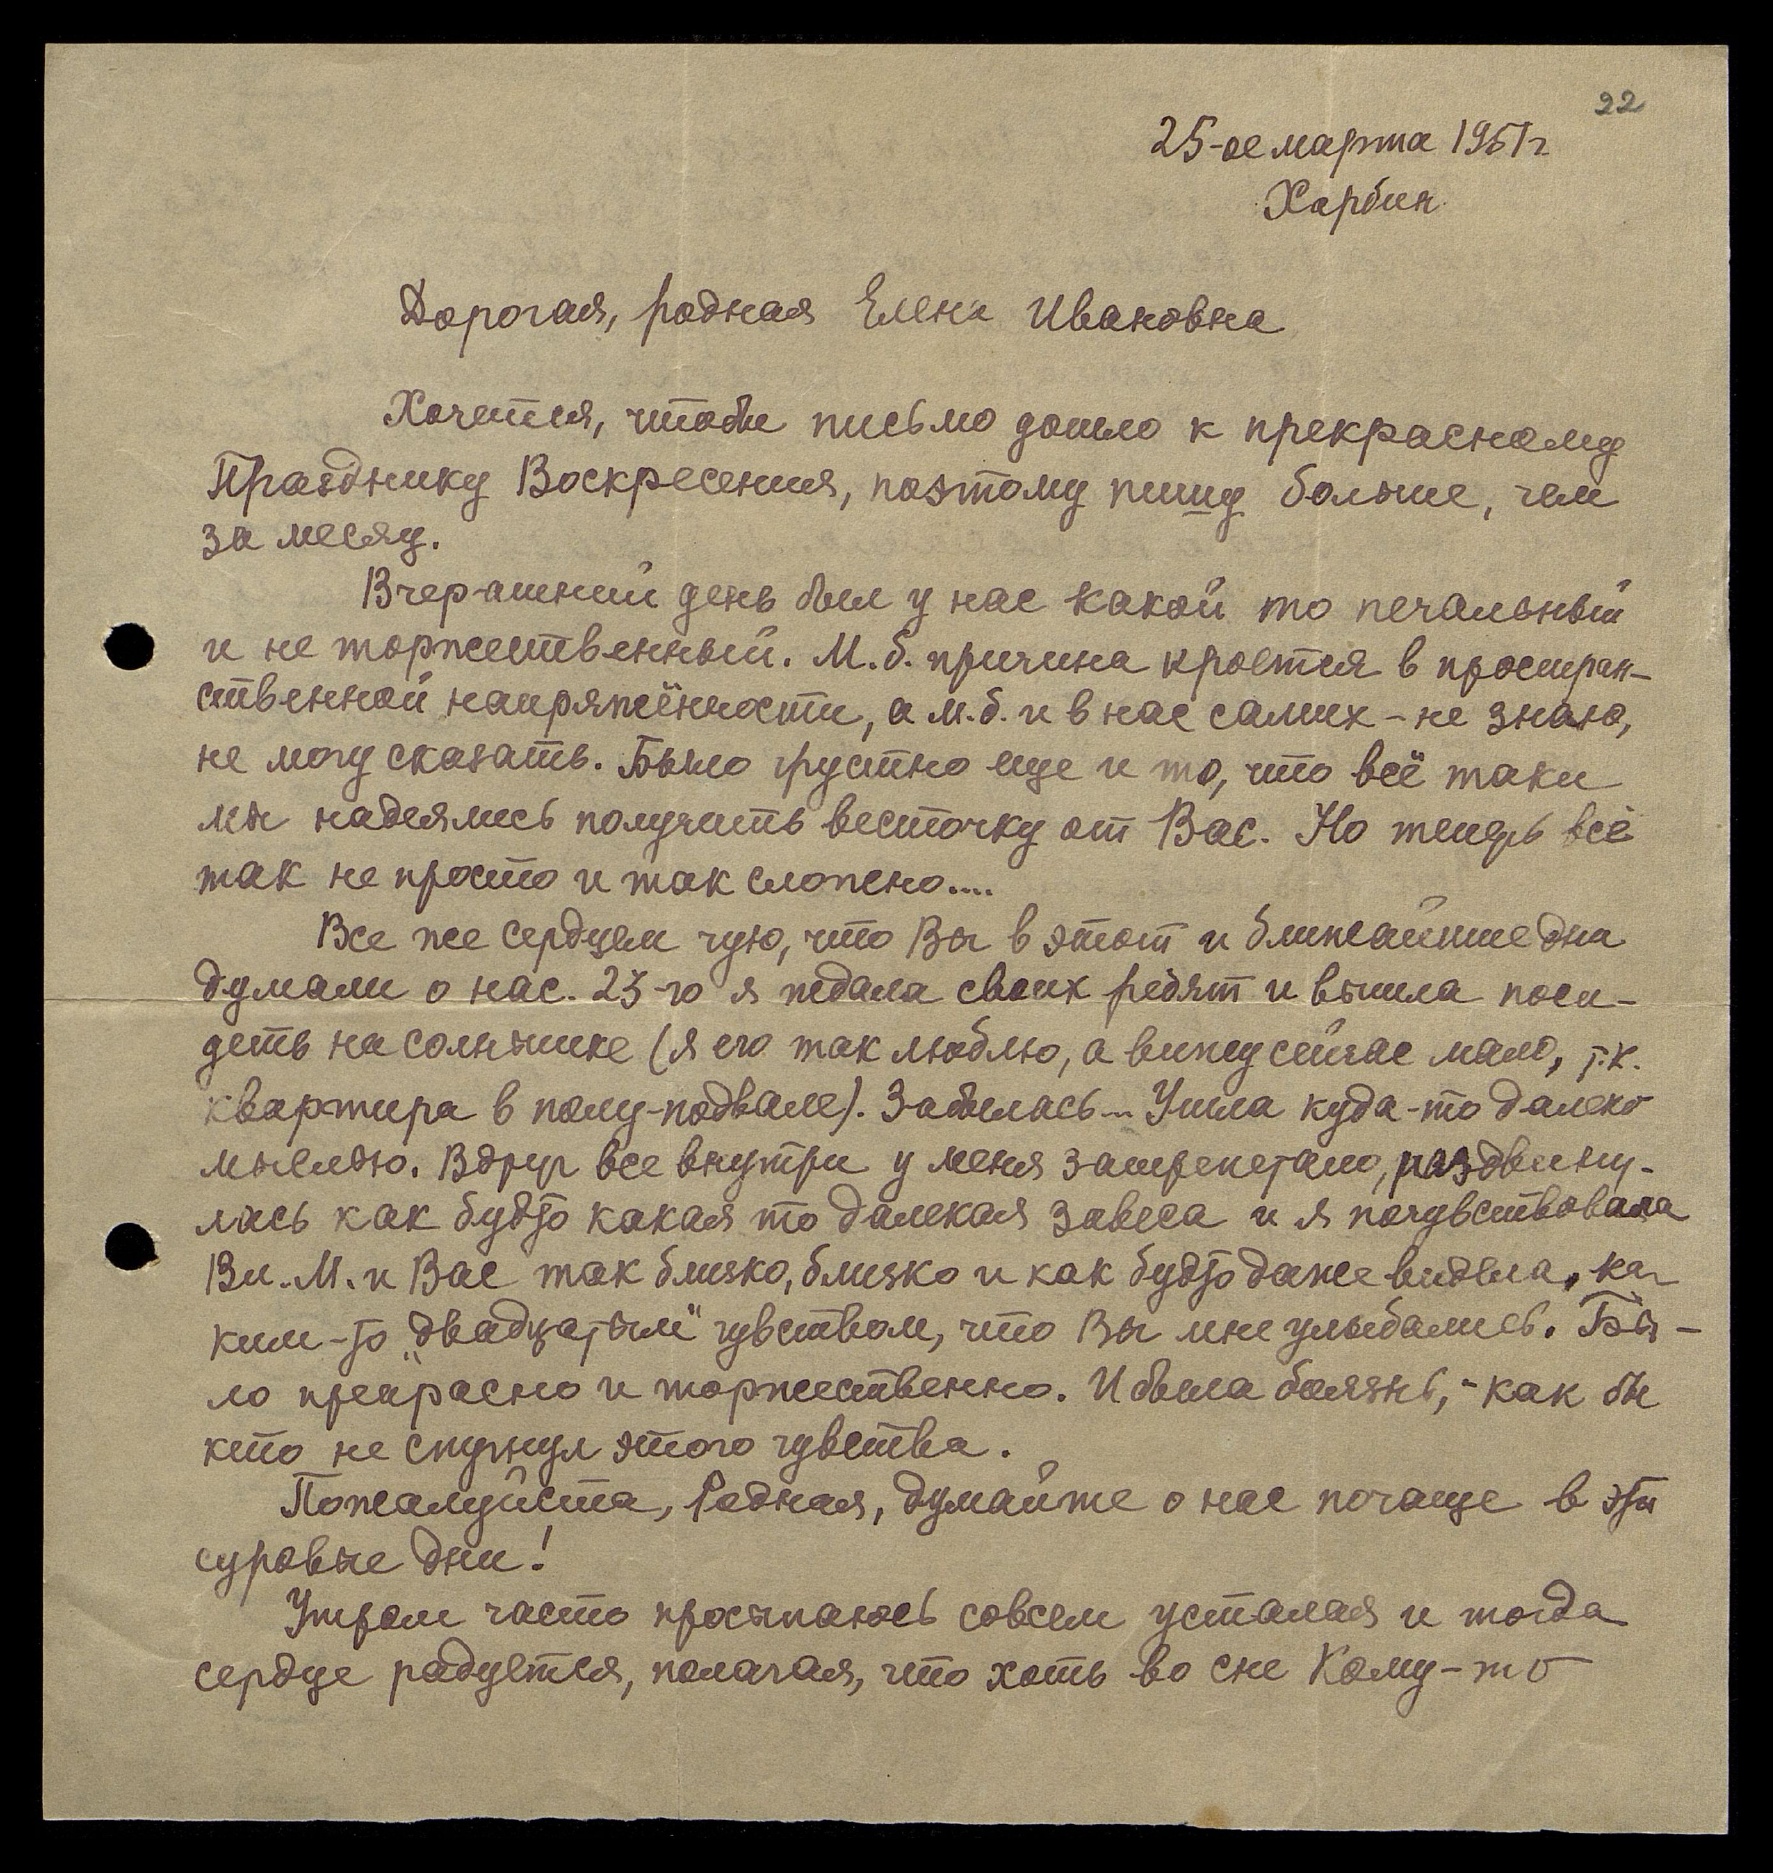 22
25-ое марта 1951г
Харбин
Дорогая, родная Елена Ивановна
Хочется, чтобы письмо дошло к прекрасному
Празднику Воскресения, поэтому пишу больше, чем
за месяц.
Вчерашний день был у нас какой то печальный
и не торжественный. М.б. причина кроется в простран-
ственной напряжённости, а м.б. и в нас самих - не знаю,
не могу сказать. Было грустно еще и то, что всё таки
мы надеялись получить весточку от Вас. Но теперь всё
так не просто и так сложно....
Все же сердцем чую, что Вы в этот и ближайшие дни
думали о нас. 23-го я ждала своих ребят и вышла поси-
деть на солнышке (я его так люблю, а вижу сейчас мало, т.к.
квартира в полу-подвале). Забылась... Ушла куда-то далеко
мыслью. Вдруг все внутри у меня затрепетало, раздвину-
лась как будто какая то далекая завеса и я почувствовала
Вл. М. и Вас так близко, близко и как будто даже видела, ка-
ким-то „двадцатым" чувством, что Вы мне улыбались. Бы-
ло прекрасно и торжественно. И была боязнь, - как бы
кто не спугнул этого чувства.
Пожалуйста, Родная, думайте о нас почаще в эти
суровые дни!
Утром часто просыпаюсь совсем усталая и тогда
сердце радуется, полагая, что хоть во сне Кому-то